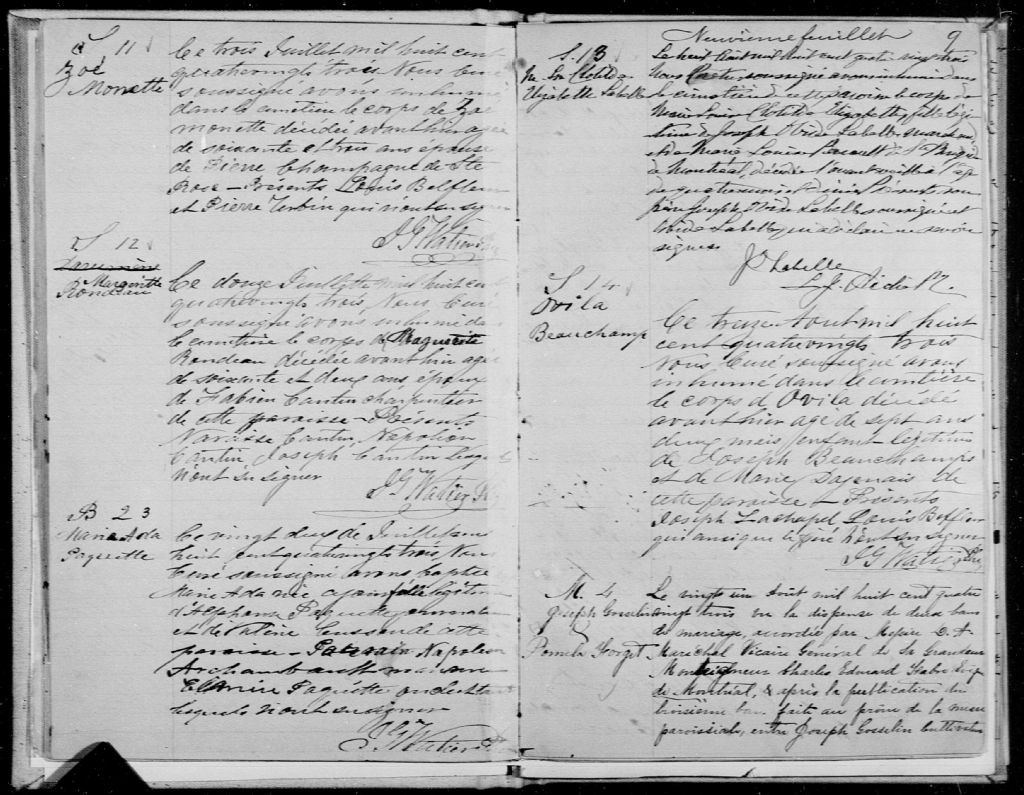 S 11
Zoé
Monette
Ce trois Juillet mil huit cent
quatrevingt trois Nous Curé
soussigné avons inhumé
dans le cimetière le corps de Zoé
Monette décédée avant hier agée
de soixante et trois ans épouse
de Pierre Champagne de Ste
Rose - Présents Louis Belfleur
et Pierre qui n'ont su signer
J G Watier Ptr
S 12
Marguerite
Rondeau
Ce douze Juillet mil huit cent
quatrevingts trois Nous Curé
soussigné avons inhumé dans
le cimetière le corps de Marguerite
Rondeau décédée avant hier agée
de soixante et deux ans épouse
de Fabien Cantin charpentier
de cette paroisse - Présents
Narcisse Cantin Napoléon
Cantin Joseph Cantin lesquels
n'ont su signer
J G Watier Ptr
B 23
Marie Ada
Paquette
Ce vingt deux de Juillet mil
huit cent quatrevingts trois Nous
Curé soussigné avons baptisé
Marie Ada née fille légitime
d'Alphonse Paquette journalier
et de de cette
paroisse - Parrain Napoléon
Archambault marraine
Elmire Paquette
lesquels n'ont su signer
J G Watier Ptr
Neuvième feuillet 9
S. 13
Me Lse Clotilde
Elizabeth Labelle
Le huit Août mil huit cent quatre vingt trois
Nous soussigné avons inhumé dans
le cimetière de cette paroisse le corps de
Marie Louise Clotilde Elizabeth, fille légi-
time de Joseph Ovide Labelle, marchand
et de Marie Louise
de Montréal, décédée l'avant veille à l'age
de quatre mois Présents son
père Joseph Ovide Labelle soussigné et
Labelle qui a déclaré ne savoir
signer.
J O Labelle
S 14
Ovila
Beauchamp
Ce treize Aout mil huit
cent quatrevingts trois
Nous Curé soussigné avons
inhumé dans le cimetière
le corps d Ovila décédé
avant hier agé de sept ans
deux mois enfant légitime
de Joseph Beauchamps
et de Marie Dagenais de
cette paroisse - Présents
Joseph Lachapel Louis Belfleur
qui ainsi que le père n'ont su signer
J G Watier Ptr
M. 4
Joseph Gosselin
Pomela Forget
Le vingt un Août mil huit cent quatre
vingt trois vu la dispense de deux bans
de mariage, accordée par Messire D. A
Maréchal Vicaire Général de Sa Grandeur
Monseigneur Charles Edouard Fabre Evêq
de Montréal, & après la publication du
troisième ban faite au prône de la messe
paroissiale, entre Joseph Gosselin Cultivateur